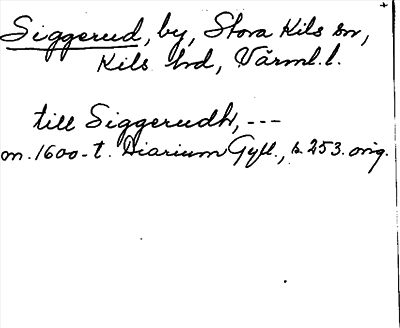 Siggerud, by, Stora Kils sn,
Kils hd, Värml. l.
till Siggerudh, ---
m. 1600-t. Diarium Gyll., s. 253. orig.